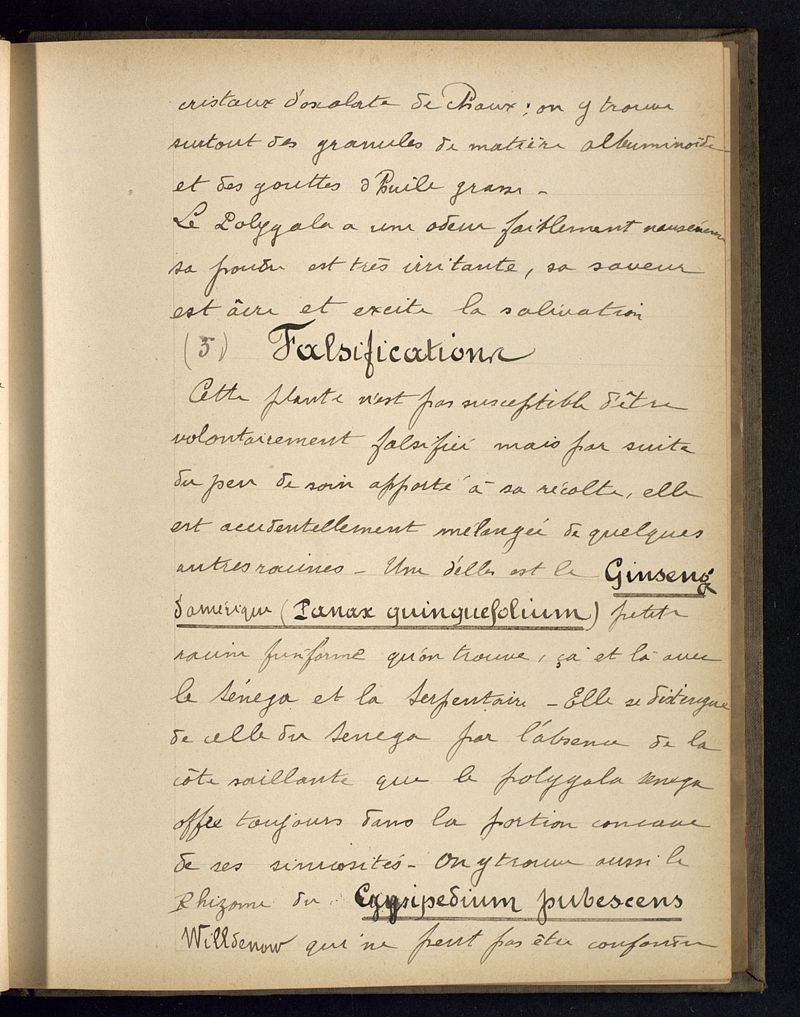 cristaux d'oxalate de chaux ; on y trouve
surtout des granules de matière albuminoïde
et des gouttes d'huile grasse -
Le Polygala a une odeur faiblement nauséeuse
sa poudre est très irritante, sa saveur
est âcre et excite la salivation
(5) Falsifications
Cette plante n'est pas susceptible d'être
volontairement falsifiée mais par suite
du peu de soin apporté à sa récolte, elle
est accidentellement mélangée de quelques
autres racines - Une d'elles est le Ginseng
d'amérique (Panax quinquefolium) petite
racine fusiforme qu'on trouve, çà et là avec
le Sénega et la Serpentaire - Elle se distingue
de celle du Senega par l'absence de la
côte saillante que le polygala senega
offre toujours dans la portion concave
de ses sinuosités - On y trouve aussi le
Rhizome du Cypripedium pubescens
Willdenow qui ne peut pas être confondu